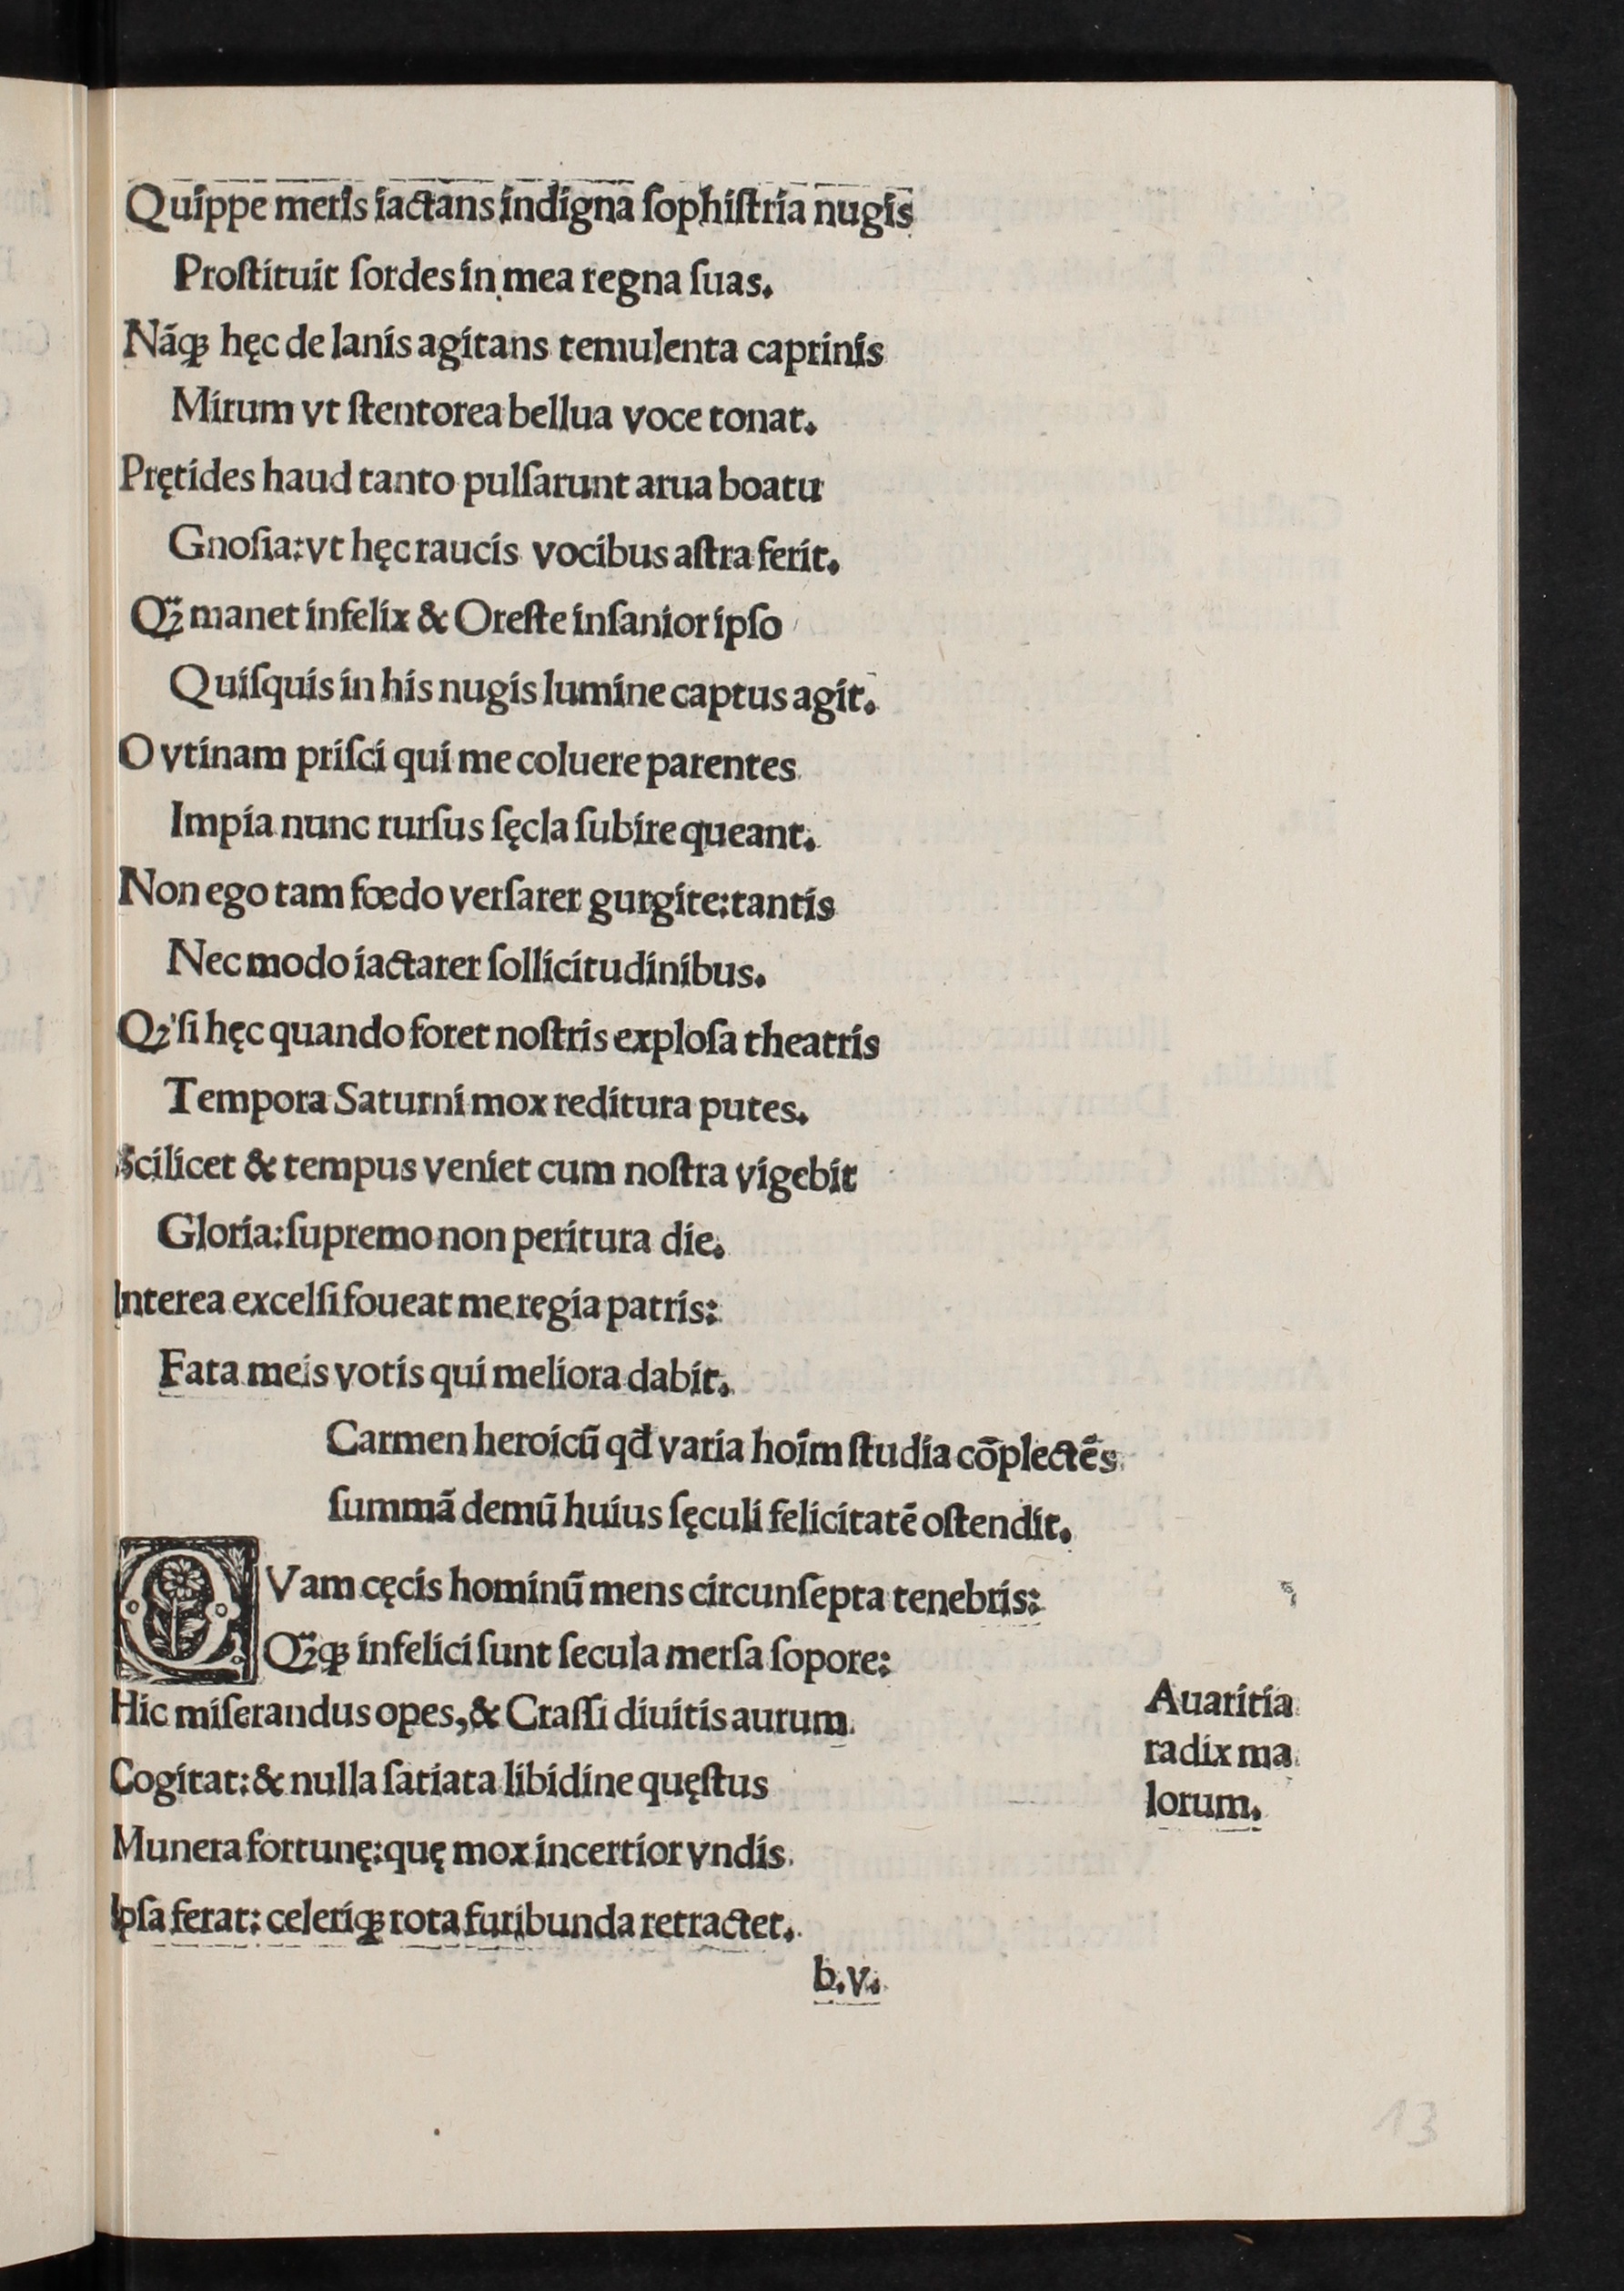 Quippe meris iactans indigna ſophiſtria nugis
Proſtituit ſordes in mea regna ſuas.
Nãqꝫ hęc de lanis agitans temulenta caprinis
Mirum vt ſtentorea bellua voce tonat.
Prętides haud tanto pulſarunt arua boatu
Gnoſia: vt hęc raucis vocibus aſtra ferit.
Qꝫ̈ manet infelix & Oreſte inſanior ipſo
Quiſquis in his nugis lumine captus agit.
O vtinam priſci qui me coluere parentes
Impia nunc rurſus ſęcla ſubire queant.
Non ego tam fœdo verſarer gurgite: tantis
Nec modo iactarer ſollicitudinibus.
Qꝫ' ſi hęc quando foret noſtris exploſa theatris
Tempora Saturni mox reditura putes.
Scilicet & tempus veniet cum noſtra vigebit
Gloria: ſupremo non peritura die.
Interea excelſi foueat me regia patris:
Fata meis votis qui meliora dabit.
Carmen heroicũ qđ varia hoĩm ſtudia cõplectẽs
ſummã demũ huius ſęculi felicitatẽ oſtendit.
QVam cęcis hominũ mens circunſepta tenebris:
Qꝫ̈qꝫ infelici ſunt ſecula merſa ſopore:
Hic miſerandus opes, & Craſſi diuitis aurum
Cogitat: & nulla ſatiata libidine quęſtus
Munera fortunę: quę mox incertior vndis
Ipſa ferat: celeriqꝫ rota furibunda retractet.
Auaritia
radix ma
lorum.
b.v.
13